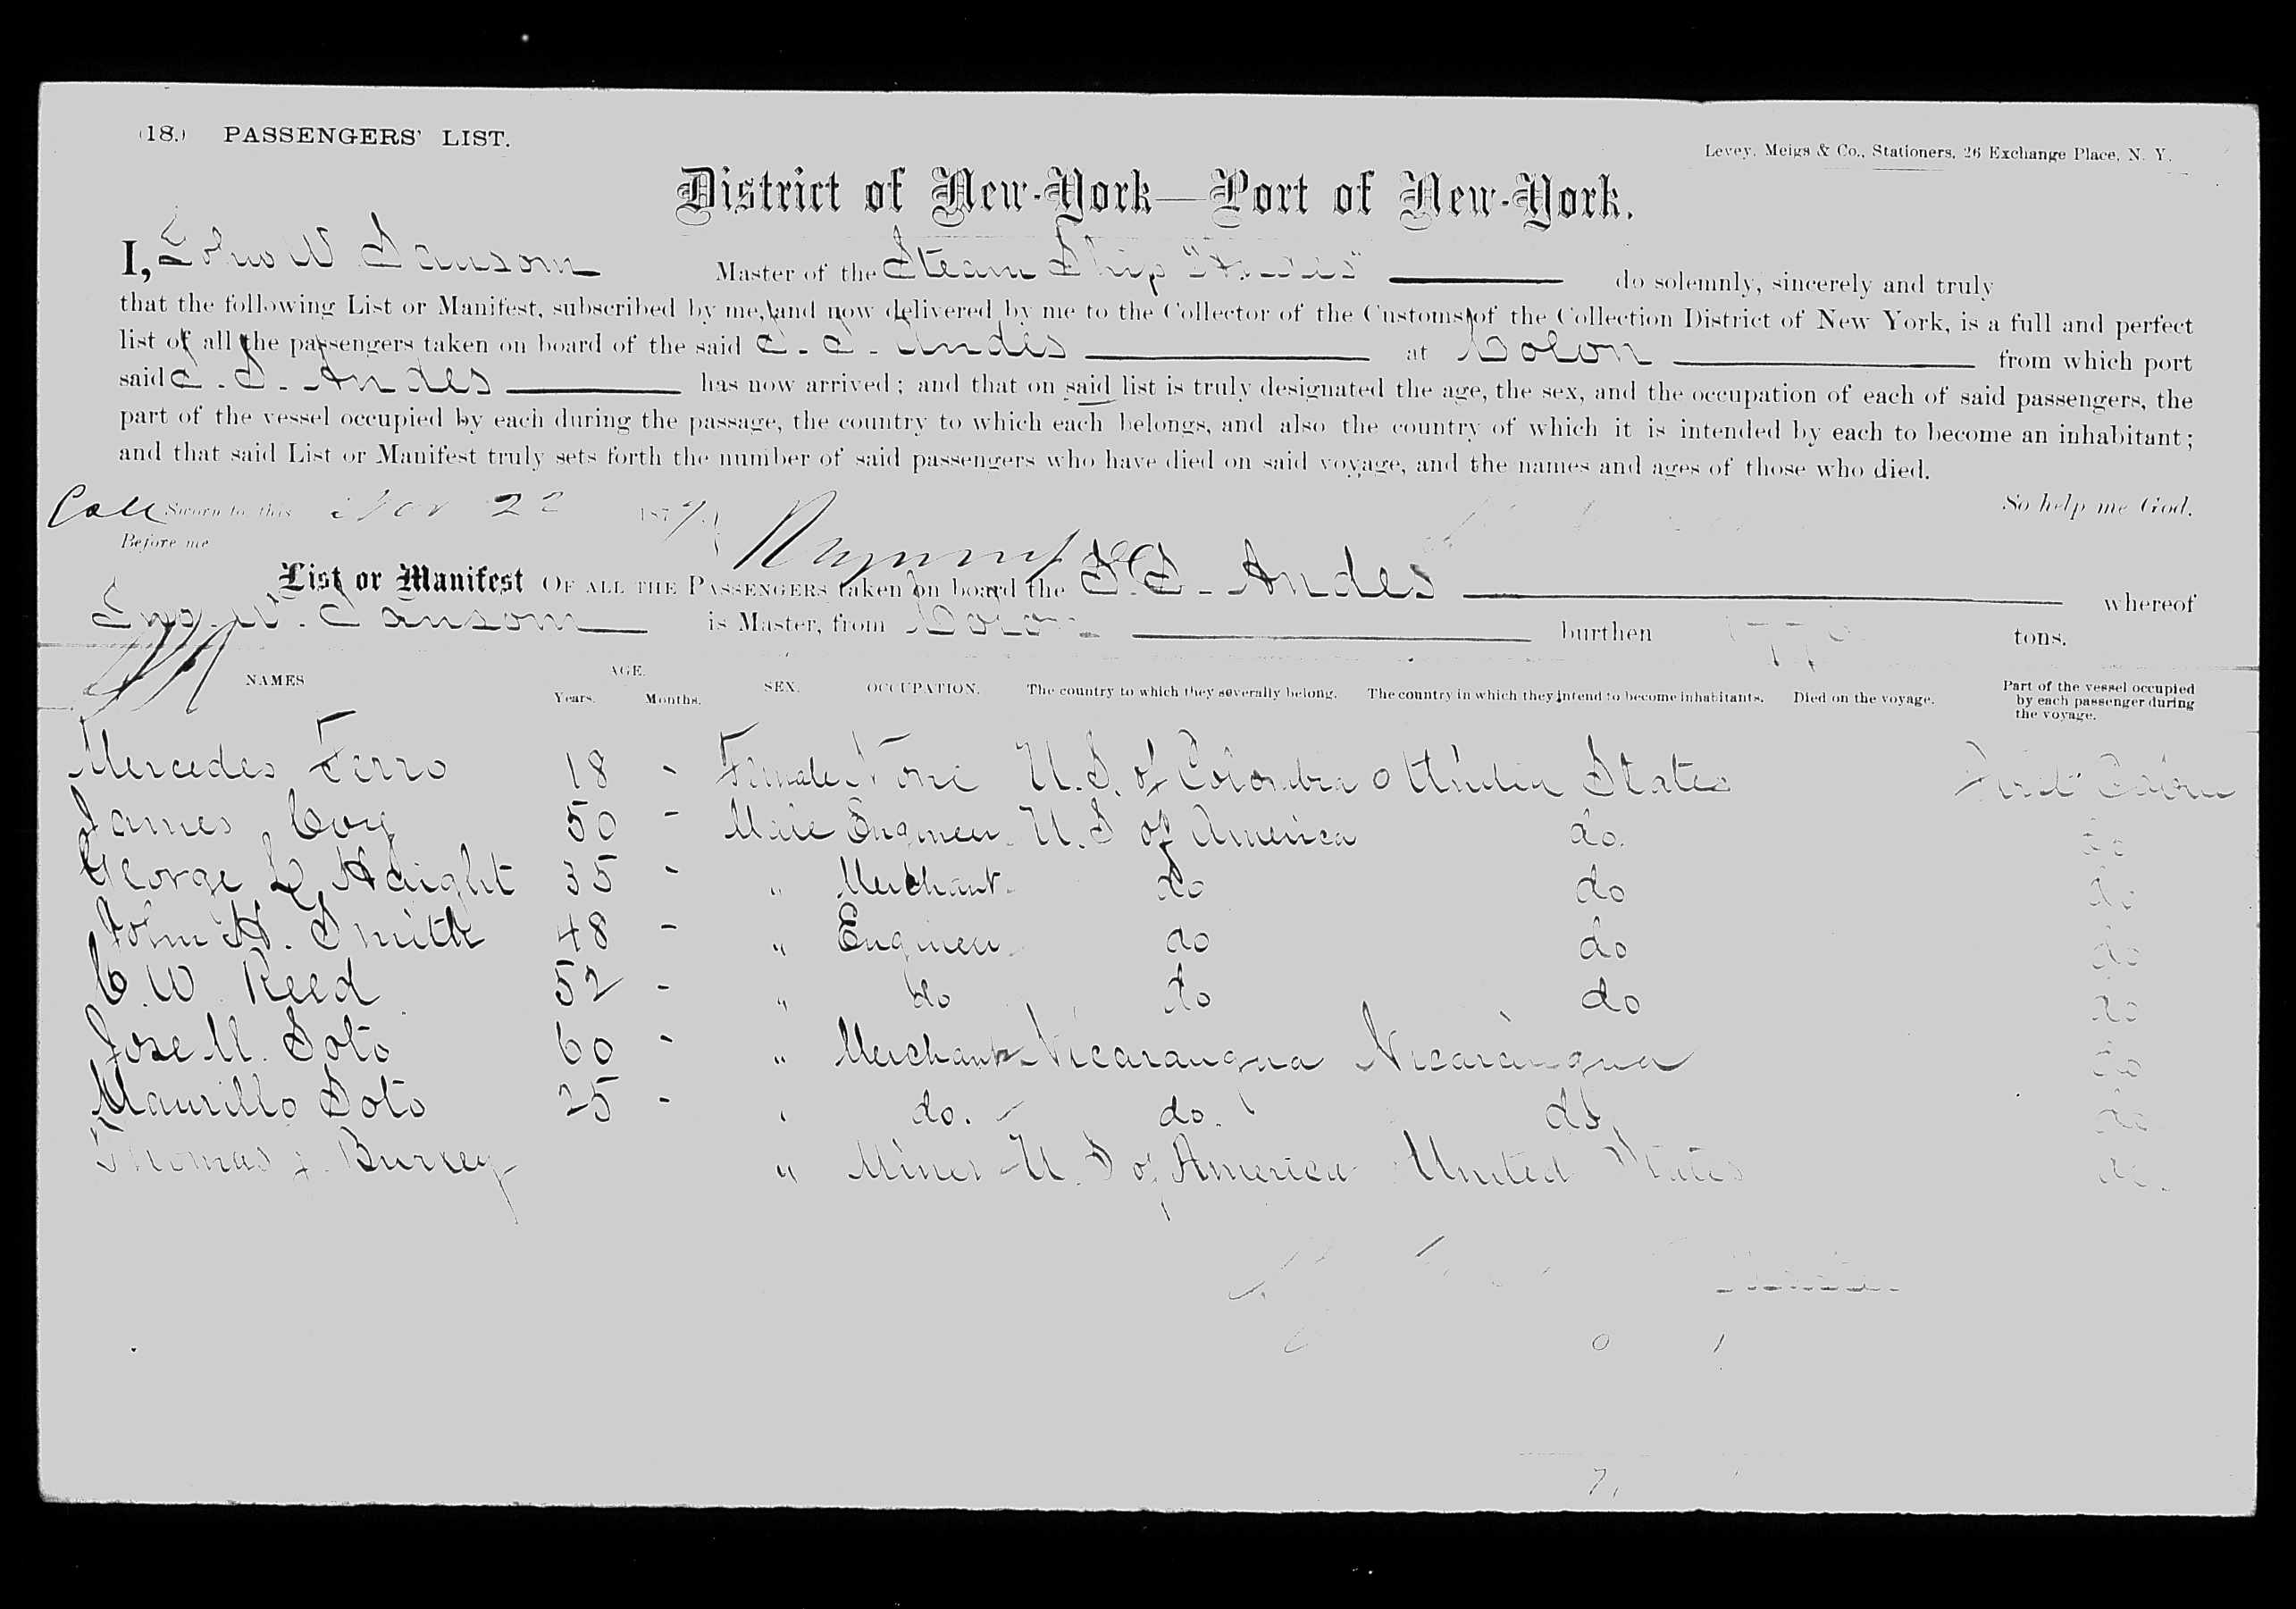 (18.) PASSENGERS' LIST.
Levey, Meigs & Co., Stationers, 26 Exchange Place, N. Y.
District of New-York—Port of New-York.
I, W Sansom Master of the Steam Ship "Andes" do solemnly, sincerely and truly
that the following List or Manifest, subscribed by me, and now delivered by me to the Collector of the Customs of the Collection District of New York, is a full and perfect
list of all the passengers taken on board of the said S. S. Andes at Colon from which port
said S. S. Andes has now arrived; and that on said list is truly designated the age, the sex, and the occupation of each of said passengers, the
part of the vessel occupied by each during the passage, the country to which each belongs, and also the country of which it is intended by each to become an inhabitant;
and that said List or Manifest truly sets forth the number of said passengers who have died on said voyage, and the names and ages of those who died.
So help me God.
Sworn to this Nov 22 187
Before me
List or Manifest OF ALL THE PASSENGERS taken on board the S.S. Andes whereof
Jno. W. Sansom is Master, from Colon burthen tons.
NAMES AGE. Years. Months. SEX. OCCUPATION. The country to which they severally belong. The country in which they intend to become inhabitants. Died on the voyage. Part of the vessel occupied by each passenger during the voyage.
Mercedes Ferro 18 - Female None U.S. of Colombia United States First Cabin
James Coy 50 - Male Engineer U.S of America do. do
George L Haight 35 - " Merchant do do do
John H. Smith 48 - " Engineer do do do
C. W. Reed 52 - " do do do do
Jose M. Soto 60 - " Merchant Nicarangua Nicarangua do
Maurillo Soto 25 - " do. do. do do
Thomas Burkey " Miner U.S of America United States do.